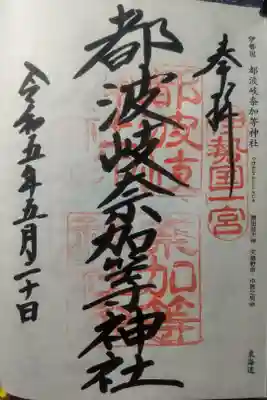 伊勢国 都波岐奈加等神社
東海道
奉拝
伊勢国一宮
都波岐奈加等神社
令和五年五月二十日